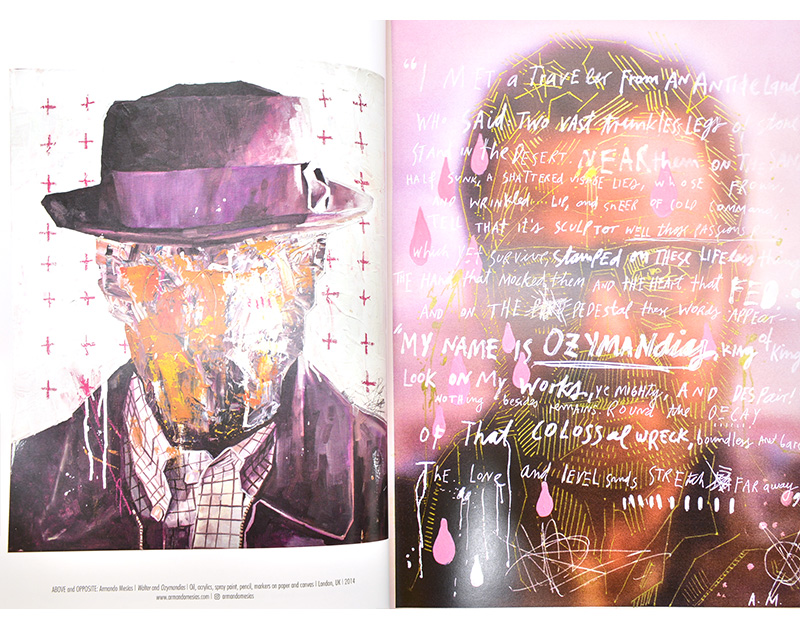 "I MET a TRAVELER from AN ANTIQUE Land
Who SAID TWO VAST trunkless LEGS of stone
STAND IN the DESERT. NEAR them ON THE SAN
HALF SUNK, A SHATTERED VISAGE LIES, WHOSE FROWN,
AND WRINKLED LIP, and SNEER OF COLD COMMAND,
TELL THAT it's SCULPTOR well those PASSIONS
Which YET SURVIVE, STAMPED ON THESE LIFELESS things
THE HAND that MOCKED them AND THE HEART that FED
AND ON THE PEDESTAL these WORDS APPEAR--
"MY NAME IS OZYMANDIAS, KING of King
LOOK ON My WORKS, ye MIGHTY, AND DESPAIR!
NOTHING besides remains. ROUND the DECAY
OF That COLOSSAL WRECK, boundless AND bare
The LONE and LEVEL sands STRETCH FAR away
A.M.
ABOVE and OPPOSITE: Armando Mesías | Walter and Ozymandias | Oil, acrylics, spray paint, pencil, markers on paper and canvas | London, UK | 2014
www.armandomesias.com | armandomesias